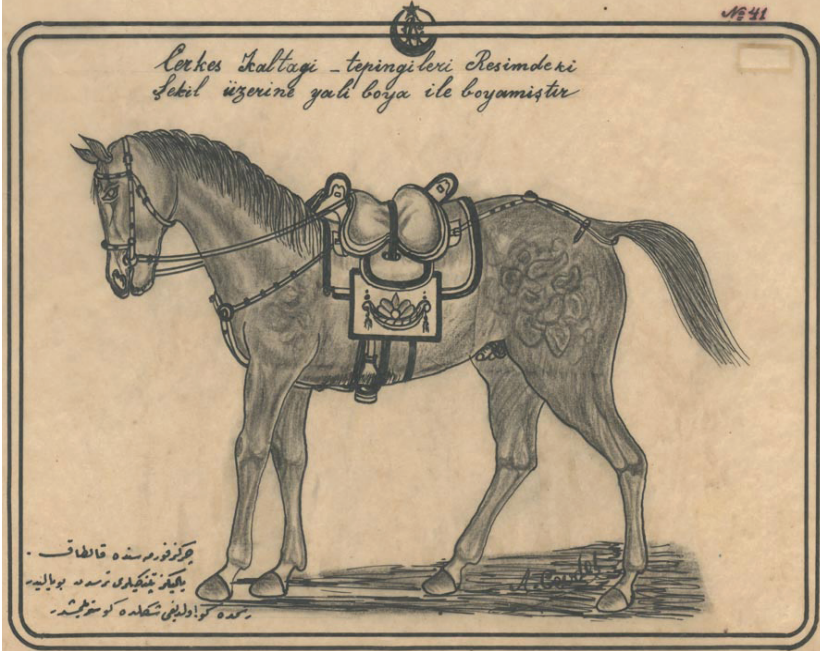 № 41
Çerkes Kaltagi - tepingileri Resimdeki
Şekil üzerine yali boya ile boyamiştir
چركز فورمه سنده قالطاق
يالكز تپنكيلرى بويالیدر
رسمده كى اولديغى شكلده كوسترلمشدر